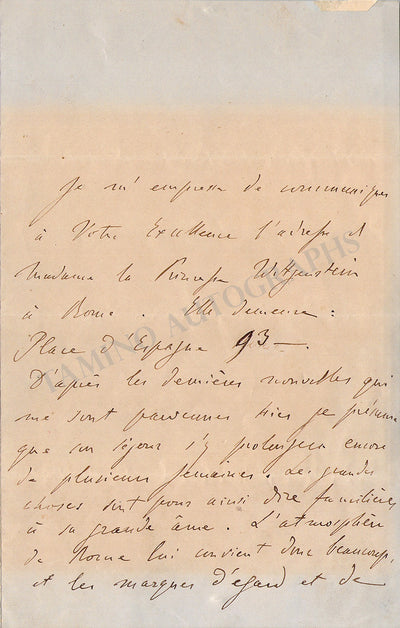 Je m'empresse de communiquer
à Votre Excellence l'adresse de
Madame la Princesse Wittgenstein
à Rome. Elle demeure:
Place d'Espagne 93—.
D'après les dernières nouvelles qui
me sont parvenues hier je présume
que son séjour s'y prolongera encore
de plusieurs semaines. Les grandes
choses sont pour ainsi dire familières
à sa grande âme. L'atmosphère
de Rome lui convient donc beaucoup,
et les marques d'égard et de
TAMINO AUTOGRAPHS